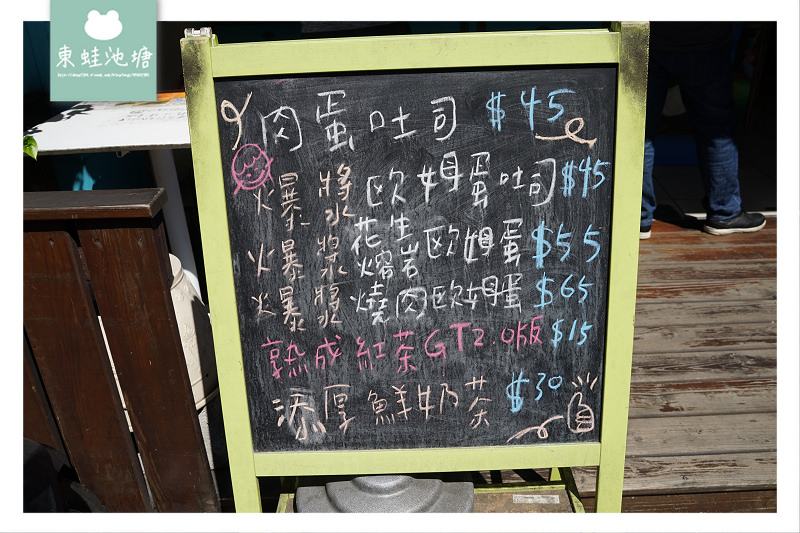 東蛙池塘
肉蛋吐司 $45
爆漿歐姆蛋吐司 $45
爆漿花生熔岩歐姆蛋 $55
爆漿燒肉歐姆蛋 $65
熟成紅茶GT2.0版 $15
添厚鮮奶茶 $30